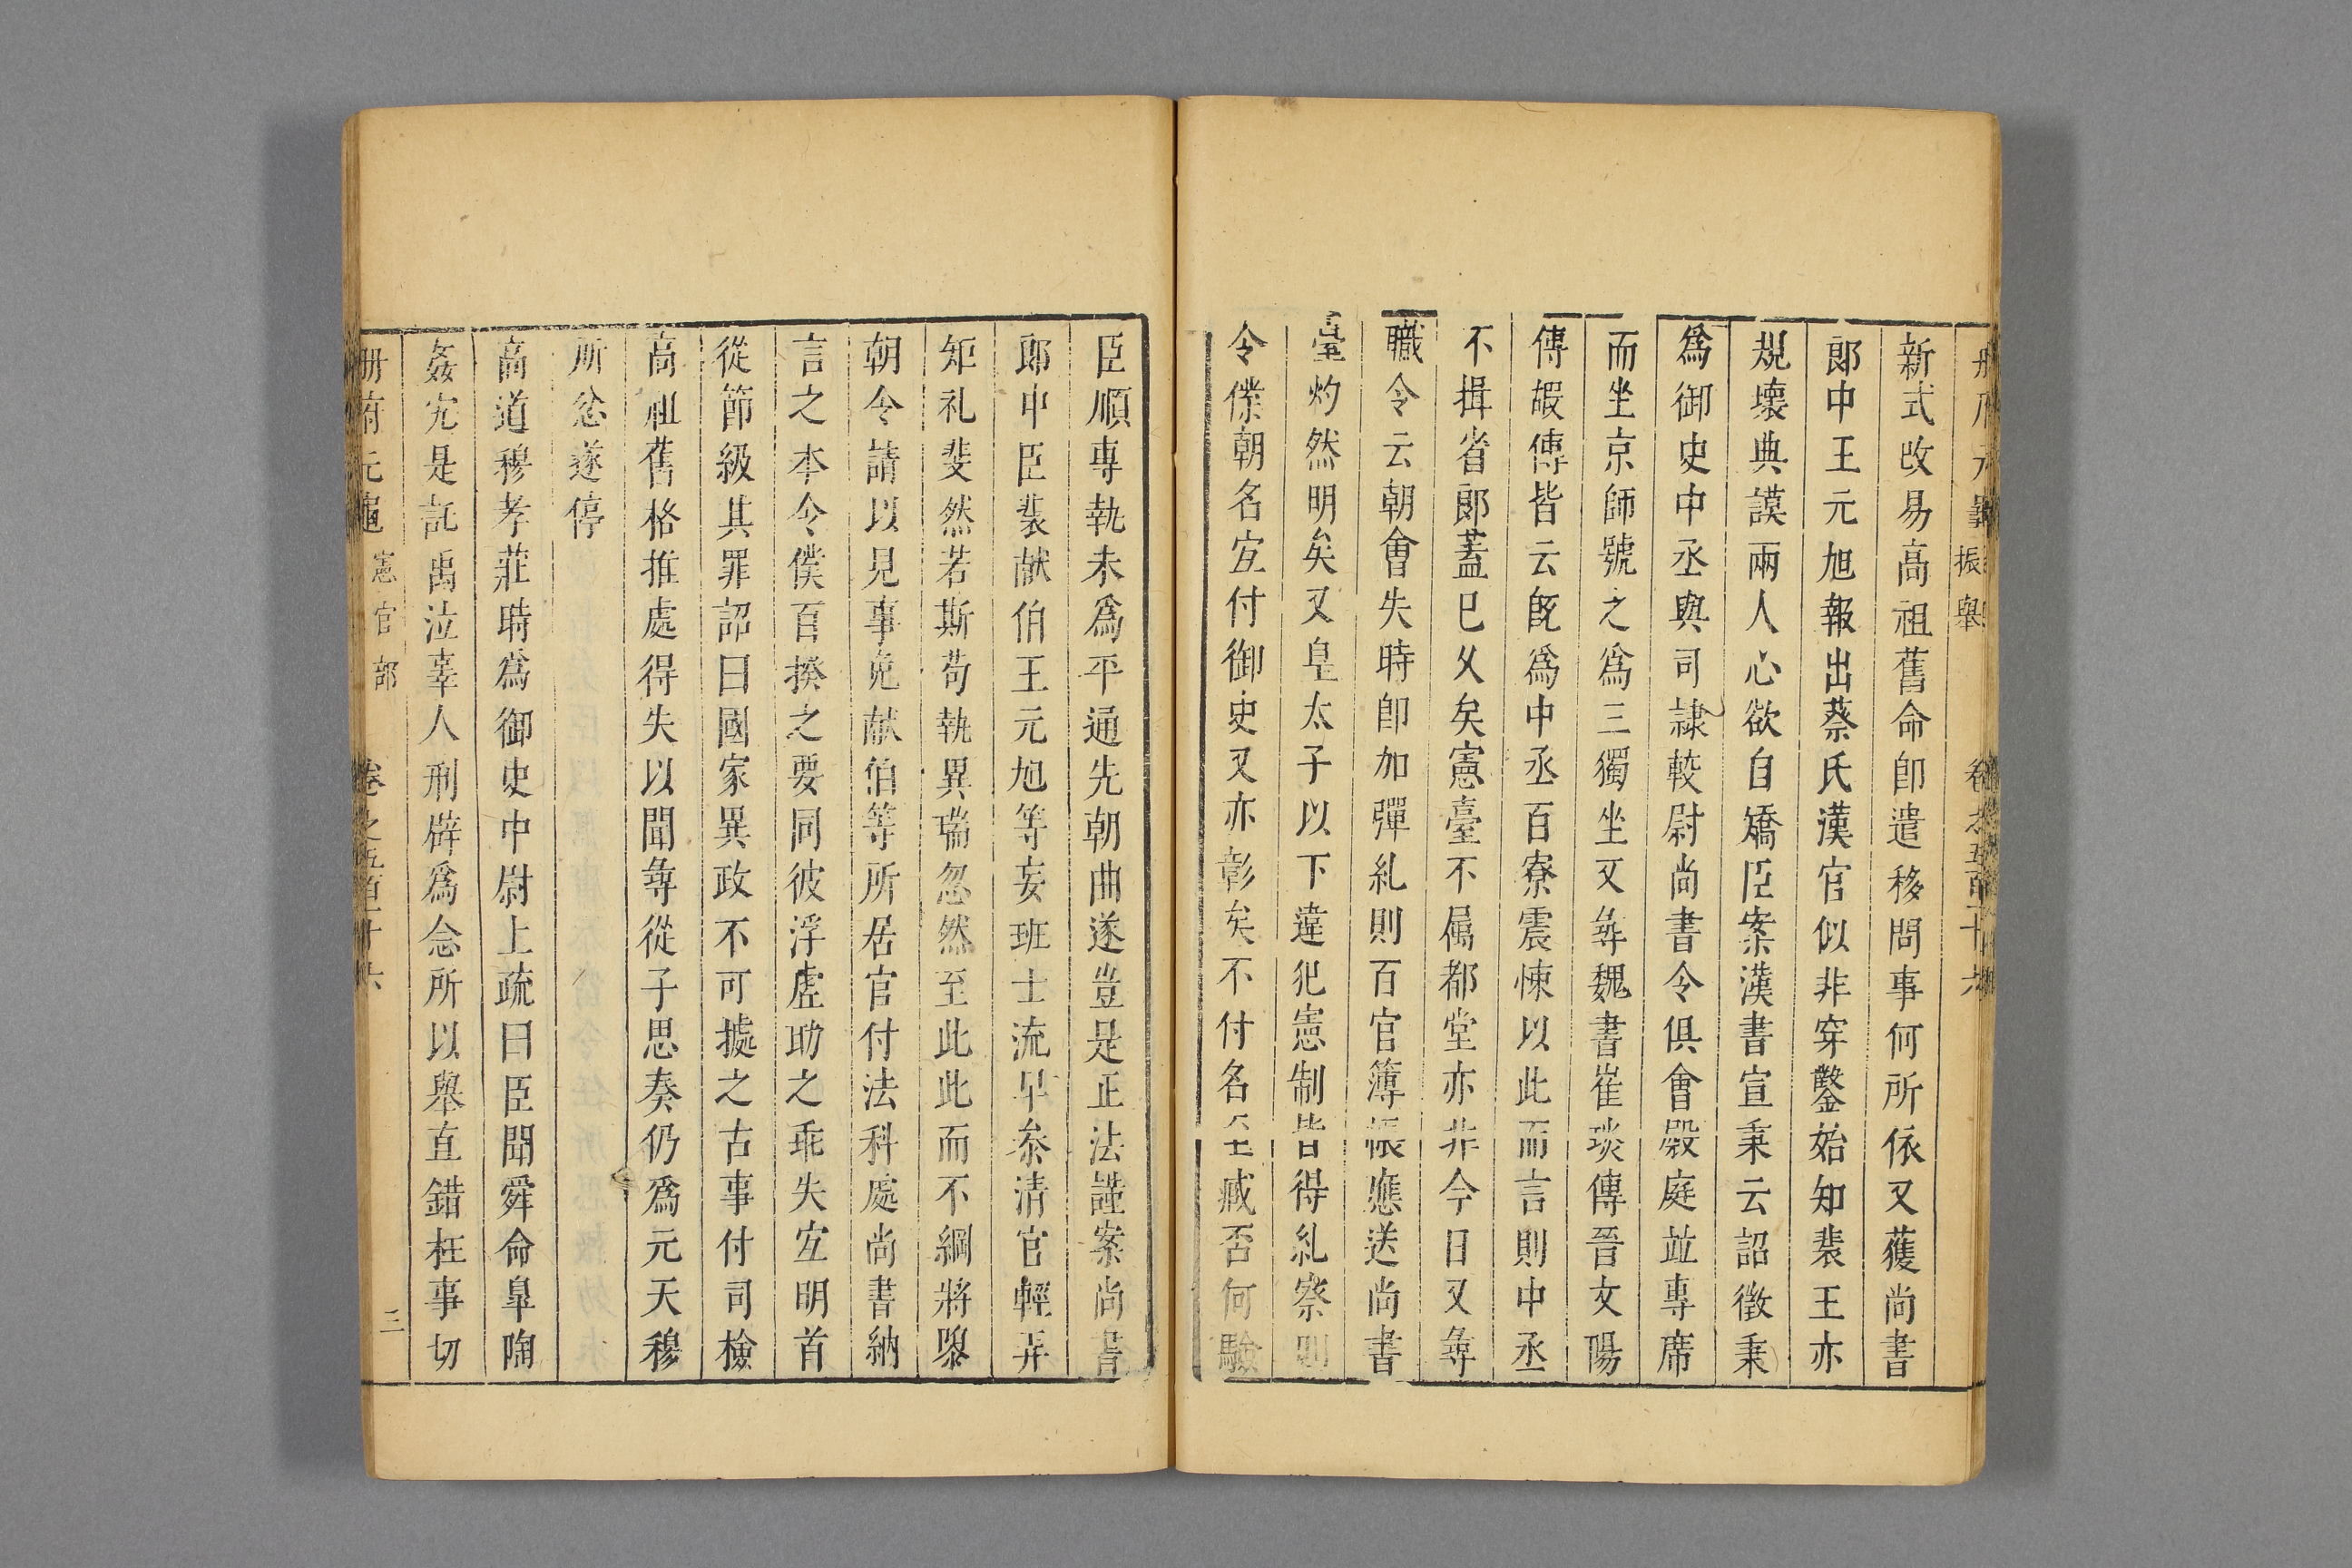 冊府元龜 振舉 卷之五百二十六
新式改易高祖舊命卽遣移問事何所依又獲尚書
郞中王元旭報出蔡氏漢官似非穿鑿始知裴王亦
規壞典謨兩人心欲自矯臣案漢書宣秉云詔徵秉
爲御史中丞與司隷較尉尚書令俱會殿庭竝專席
而坐京師號之爲三獨坐又㝷魏書崔琰傳晉文陽
傳嘏傳皆云旣爲中丞百寮震悚以此而言則中丞
不揖省郞蓋已乆矣憲臺不属都堂亦非今日又㝷
職令云朝會失時卽加彈糺則百官簿帳應送尚書
臺灼然明矣又皇太子以下違犯憲制皆得糺察則
令僕朝名宐付御史又亦彰矣不付名至臧否何驗
臣順專執未爲平通先朝曲遂豈是正法謹案尚書
郞中臣裴献伯王元旭等妄班士流早叅清官輕弄
矩礼斐然若斯苟執異端忽然至此此而不綱將隳
朝令請以見事免献伯等所居官付法科處尚書納
言之本令僕百揆之要同彼浮虛助之乖失宐明首
從節級其罪詔曰國家異政不可據之古事付司檢
高祖舊格推處得失以聞㝷從子思奏仍爲元天穆
所忿遂停
高道穆孝莊時爲御史中尉上疏曰臣聞舜命臯陶
姦宄是託禹泣辜人刑辟爲念所以舉直錯枉事切
冊府元龜 憲官部 卷之五百二十六 三